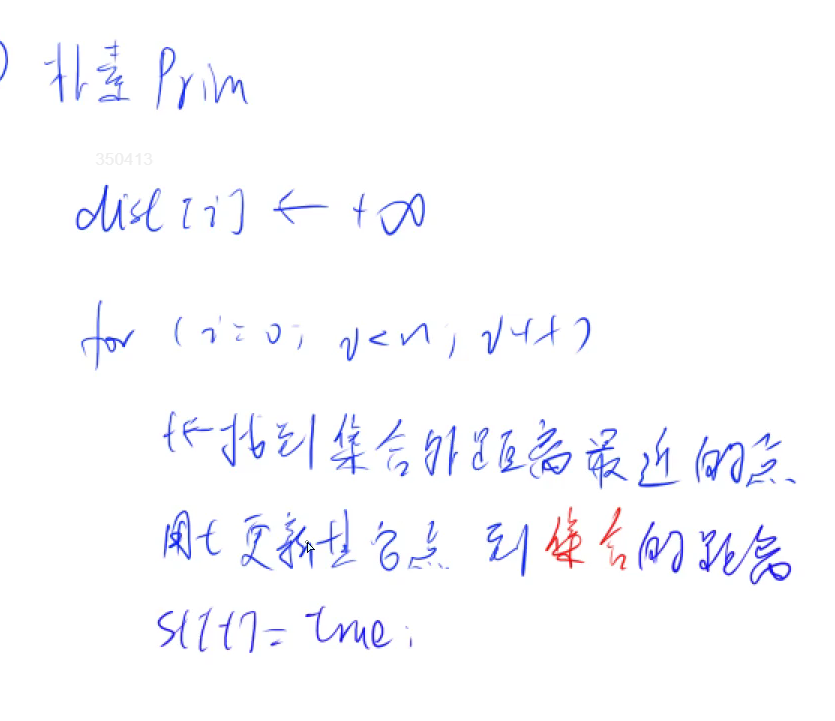 ) 朴素 Prim
350413
dist[i] ← +∞
for (i=0; i<n; i++)
t←找到集合外距离最近的点
用t更新其它点 到集合的距离
st[t]=true;